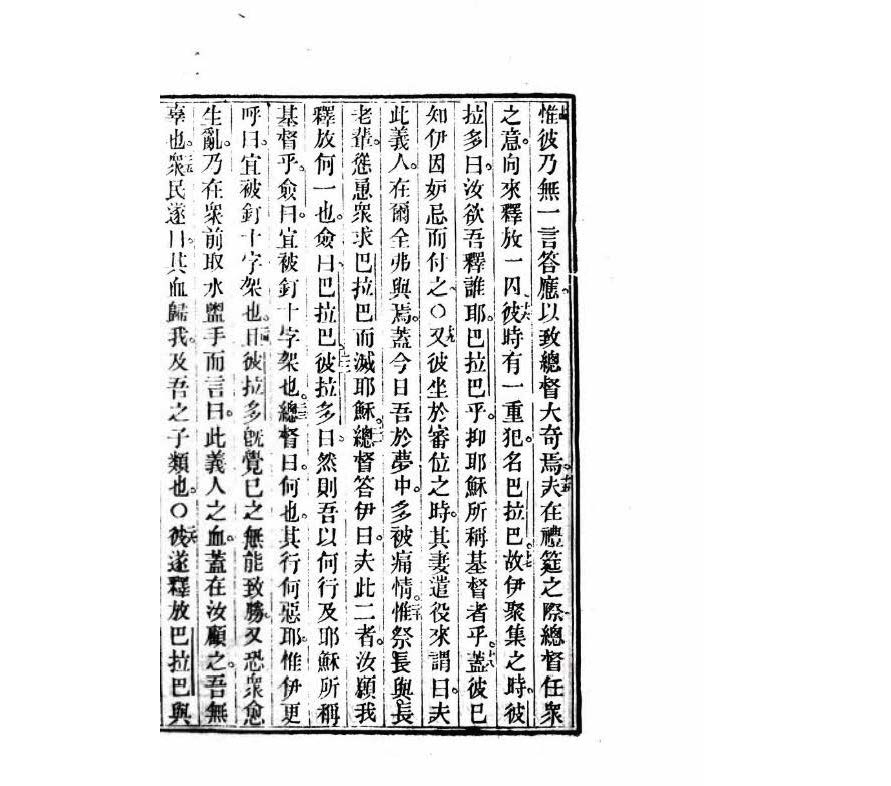 惟彼乃無一言答應以致總督大奇焉夫在禮筵之際總督任衆
之意向來釋放一囚彼時有一重犯名巴拉巴故伊聚集之時彼
拉多曰汝欲吾釋誰耶巴拉巴乎抑耶穌所稱基督者乎蓋彼已
知伊因妒忌而付之○又彼坐於審位之時其妻遣役來謂曰夫
此義人在爾全弗與焉蓋今日吾於夢中多被痛情惟祭長與長
老輩慫恿衆求巴拉巴而滅耶穌總督答伊曰夫此二者汝願我
釋放何一也僉曰巴拉巴彼拉多曰然則吾以何行及耶穌所稱
基督乎僉曰宜被釘十字架也總督曰何也其行何惡耶惟伊更
呼曰宜被釘十字架也彼拉多旣覺已之無能致勝又恐衆愈
生亂乃在衆前取水盥手而言曰此義人之血蓋在汝顧之吾無
辜也衆民遂曰其血歸我及吾之子類也○彼遂釋放巴拉巴與